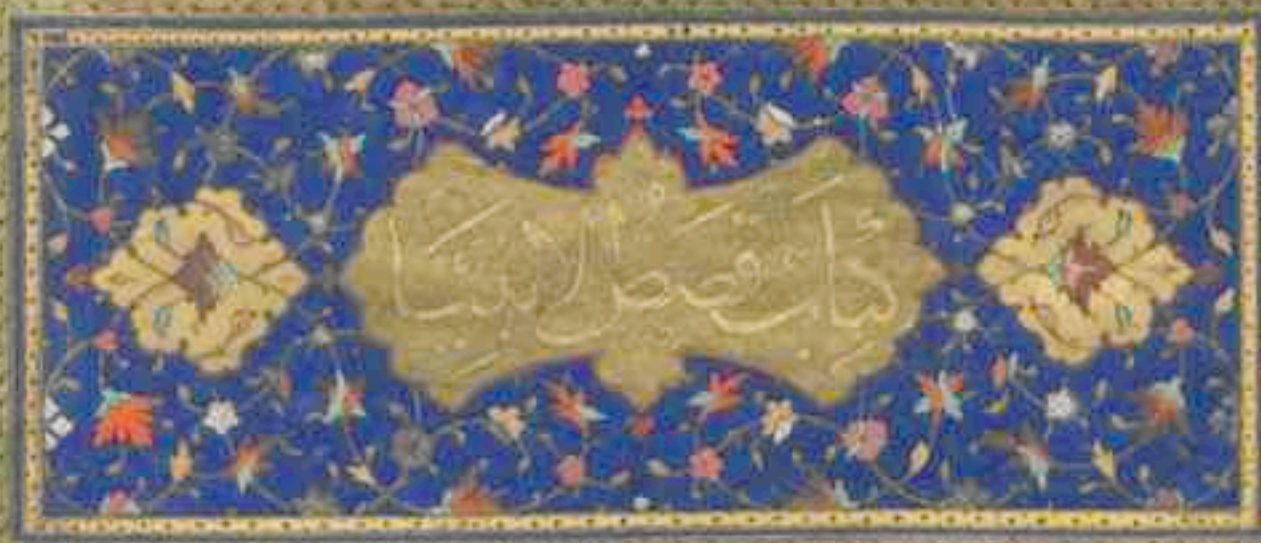 كتاب قصص الانبيا